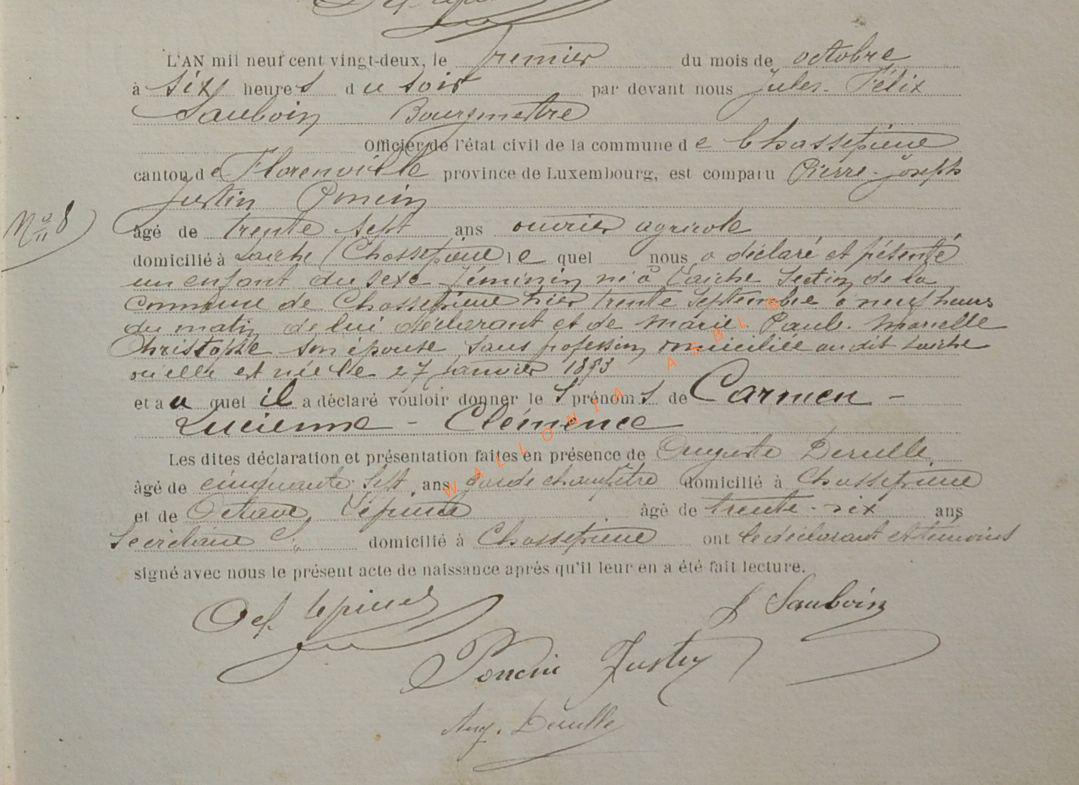 L'AN mil neuf cent vingt-deux, le premier du mois de octobre
à six heures du soir par devant nous Jules-Félix
Sauboin Bourgmestre
Officier de l'état civil de la commune de Chassepierre
canton de Florenville province de Luxembourg, est comparu Pierre-Joseph
Justin Poncin
N° 8
âgé de trente sept ans ouvrier agricole
domicilié à Laiche (Chassepierre) lequel nous a déclaré et présenté
un enfant du sexe féminin né à Laiche section de la
commune de Chassepierre hier trente septembre à neuf heures
du matin de lui déclarant et de Marie-Paule-Marcelle
Christophe son épouse sans profession domiciliée au dit Laiche
où elle est née le 27 janvier 1893
et auquel il a déclaré vouloir donner les prénoms de Carmen -
Lucienne - Clémence
Les dites déclaration et présentation faites en présence de Auguste Derulle
âgé de cinquante sept ans garde champêtre domicilié à Chassepierre
et de Octave Lépine âgé de trente-six ans
Secrétaire domicilié à Chassepierre ont le déclarant et témoins
signé avec nous le présent acte de naissance après qu'il leur en a été fait lecture.
Oct. Lépine J Sauboin
Poncin Justin
Aug. Derulle
WALLONIA ASBL